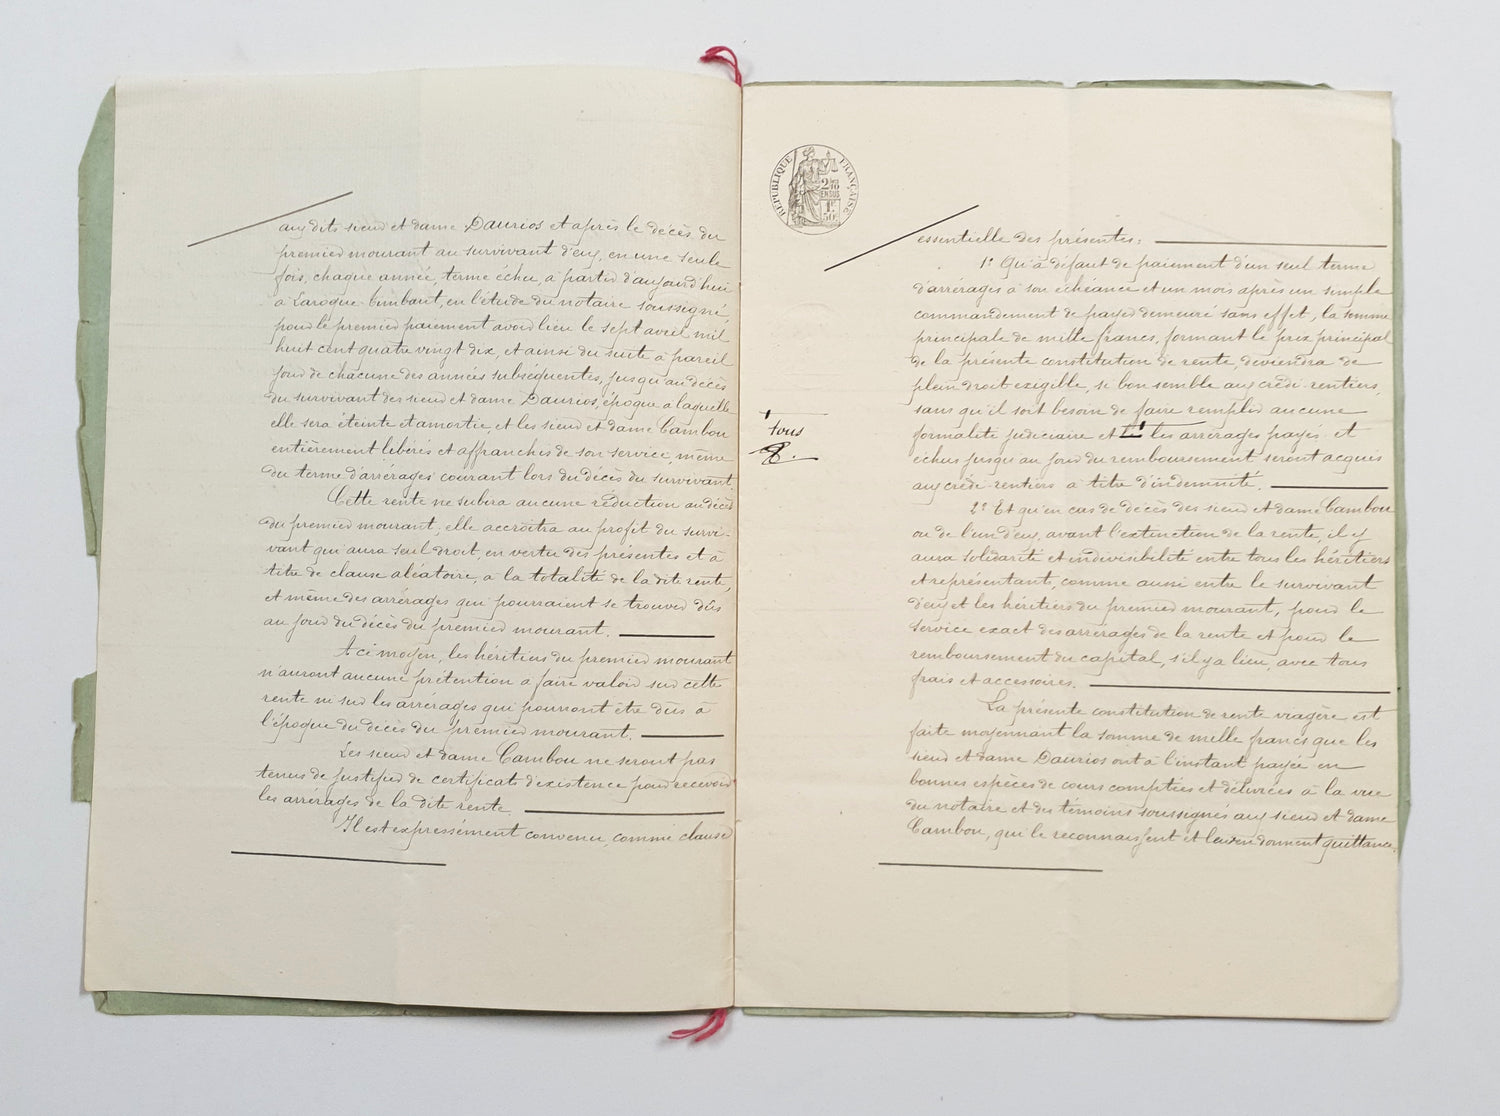 aux dits sieur et dame Daurios et après le décès du
premier mourant au survivant d'eux, en une seule
fois, chaque année, terme échu, à partir d'aujourd'hui
à Laroque-timbaut, en l'étude du notaire soussigné,
pour le premier paiement avoir lieu le sept avril mil
huit cent quatre vingt dix, et ainsi du suite à pareil
jour de chacune des années subséquentes, jusqu'au décès
du survivant des sieur et dame Daurios, époque a laquelle
elle sera éteinte et amortie, et les sieur et dame Cambou
entièrement libérés et affranchis de son service, même
du terme d'arrérages courant lors du décès du survivant.
Cette rente ne subira aucune réduction au décès
du premier mourant, elle accroîtra au profit du survi-
vant qui aura seul droit en vertu des présentes et à
titre de clause aléatoire, à la totalité de la dite rente,
et même des arrérages qui pourraient se trouver dûs
au jour du décès du premier mourant.
A ce moyen, les héritiers du premier mourant
n'auront aucune prétention à faire valoir sur cette
rente ni sur les arrérages qui pourront être dûs à
l'époque du décès du premier mourant.
Les sieur et dame Cambou ne seront pas
tenus de justifier de certificat d'existence pour recevoir
les arrérages de la dite rente
Il est expressément convenu, comme clause
RÉPUBLIQUE FRANÇAISE
2/10
EN SUS
1F
50c
essentielle des présentes:
1° Qu'à défaut de paiement d'un seul terme
d'arrérages à son échéance et un mois après un simple
commandement de payer demeuré sans effet, la somme
principale de mille francs, formant le prix principal
de la présente constitution de rente, deviendra de
plein droit exigible, si bon semble aux crédi-rentiers,
sans qu'il soit besoin de faire remplir aucune
tous
formalité judiciaire et les arrérages payés et
échus jusqu'au jour du remboursement seront acquis
aux crédi-rentiers à titre d'indemnité.
2° Et qu'en cas de décès des sieur et dame Cambou
ou de l'un d'eux, avant l'extinction de la rente, il y
aura solidarité et indivisibilité entre tous les héritiers
et représentant, comme aussi entre le survivant
d'eux et les héritiers du premier mourant, pour le
service exact des arrérages de la rente et pour le
remboursement du capital, s'il y a lieu, avec tous
frais et accessoires.
La présente constitution de rente viagère est
faite moyennant la somme de mille francs que les
sieur et dame Daurios ont à l'instant payée en
bonnes espèces de cours comptées et délivrées à la vue
du notaire et des témoins soussignés aux sieur et dame
Cambou, qui le reconnaissent et leur en donnent quittance.